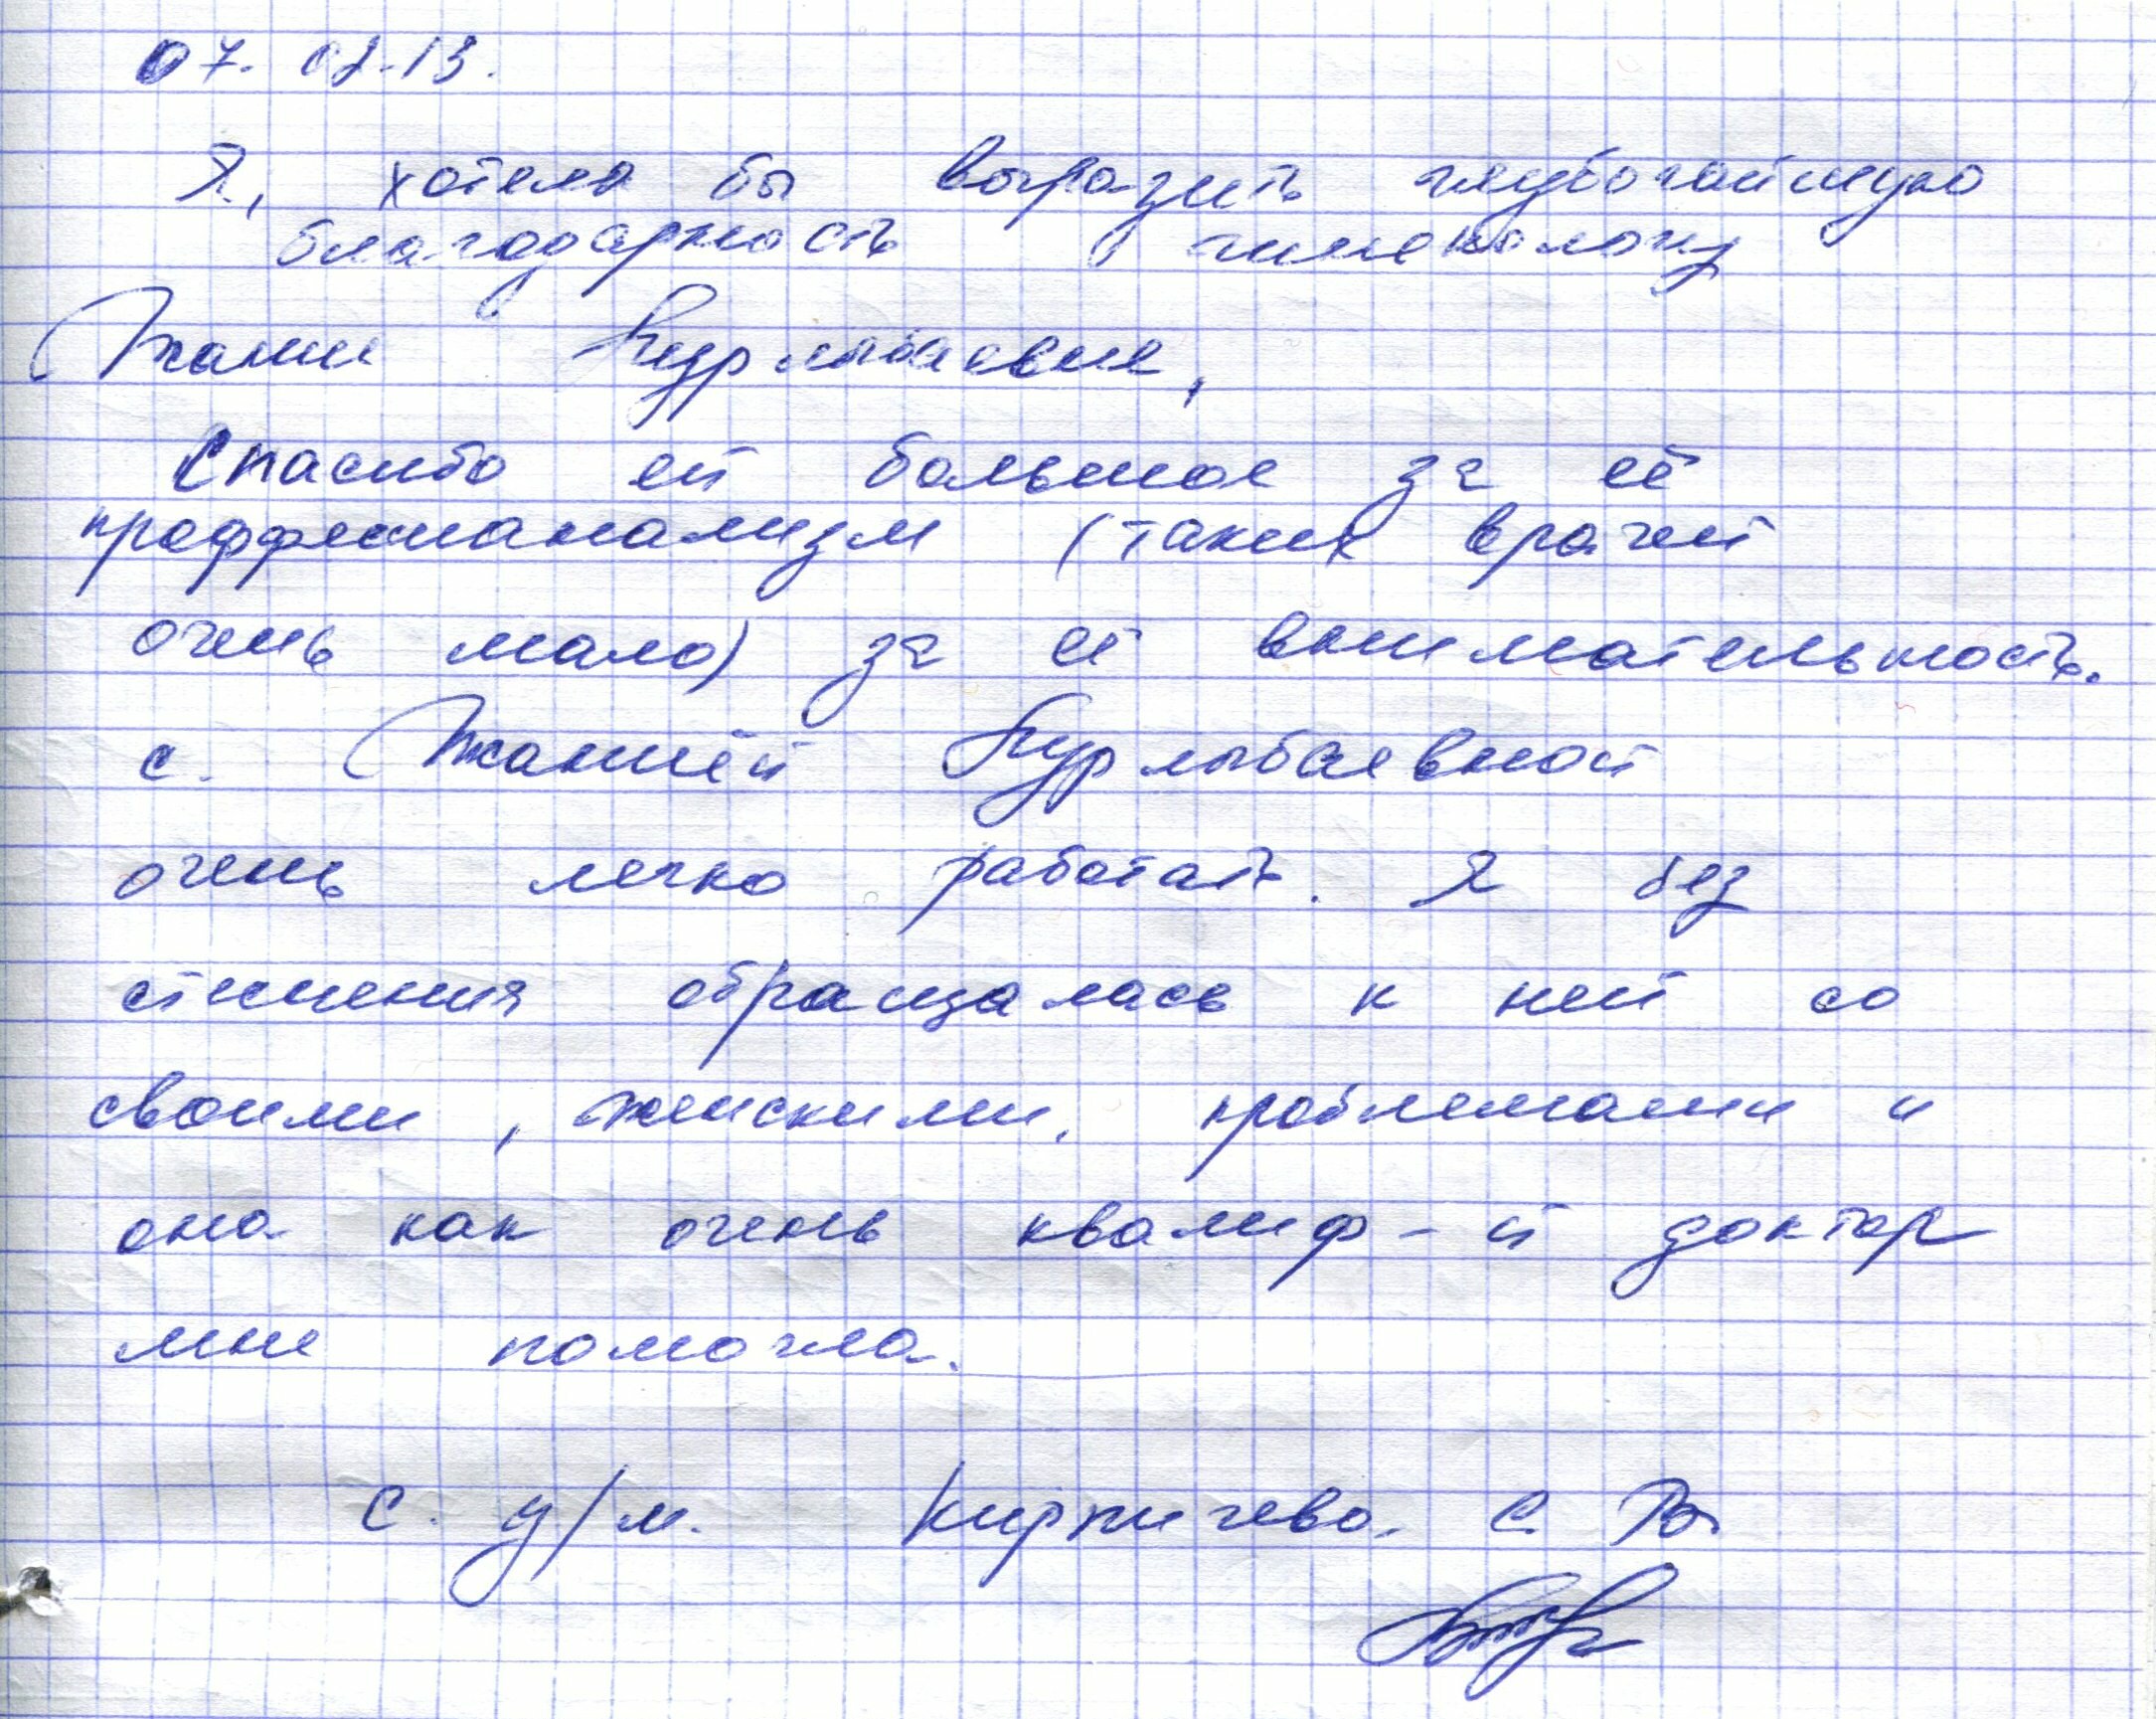 07.02.13.
Я, хотела бы выразить глубочайшую
благодарность гинекологу
Жанне Нурлыбаевне,
Спасибо ей большое за её
проффесианализм (таких врачей
очень мало) за её внимательность.
с. Жанней Нурлыбаевной
очень легко работать. Я без
стинения обращалась к ней со
своими, женскими, проблемами и
она как очень квалиф-й доктор
мне помогла.
С. у/м. Кирпичева. С. В.